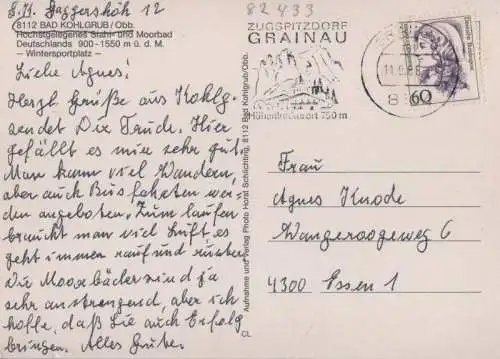 8112 BAD KOHLGRUB / Obb.
Höchstgelegenes Stahl- und Moorbad
Deutschlands 900-1550 m ü. d. M.
– Wintersportplatz –
Liebe Agnes!
Herzl. Grüße aus Kohlg.
sendet Dir Trude. Hier
gefällt es mir sehr gut.
Man kann viel Wandern,
aber auch Busfahrten wer-
den angeboten. Zum laufen
braucht man viel Luft es
geht immer rauf und runter
Die Moorbäder sind ja
sehr anstrengend, aber ich
hoffe, daß Sie auch Erfolg
bringen. Alles Gute.
CL Aufnahme und Verlag Photo Horst Schlichting, 8112 Bad Kohlgrub/Obb.
82433
ZUGSPITZDORF
GRAINAU
Höhenluftkurort 750 m
60
Deutsche Bundespost
Frau
Agnes Knode
Wangeroogeweg 6
4300 Essen 1